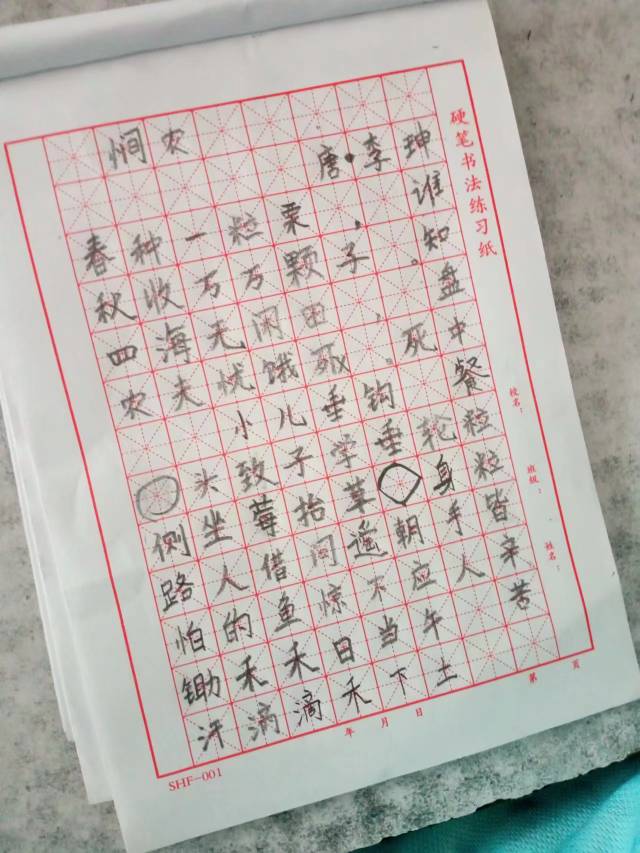 硬笔书法练习纸
悯农
唐·李珅
春种一粒栗，谁
秋收万万颗子。知
四海无闲田，盘
农夫忧饿。死中
小儿垂钓餐
头致子学垂轮粒
侧坐莓抬草身粒
路人借问遥朝手皆
怕的鱼惊不应人辛
锄禾禾日当午苦
汗滴滴禾下土
校名：
班级：
姓名：
年 月 日
第 页
SHF-001